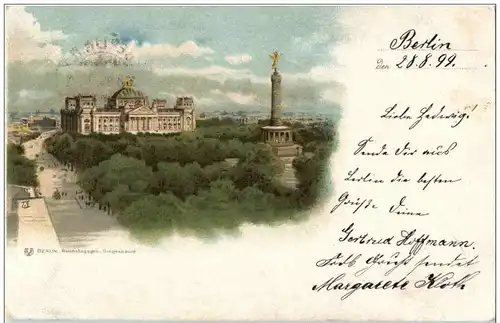 Berlin
Den 28.8.99.
Liebe Hedwig!
Sende Dir aus
Berlin die besten
Grüße Deine
Gertrud Hoffmann.
Gruß sendet
Margarete Koth
BERLIN, Reichstagsgeb., Siegessäule